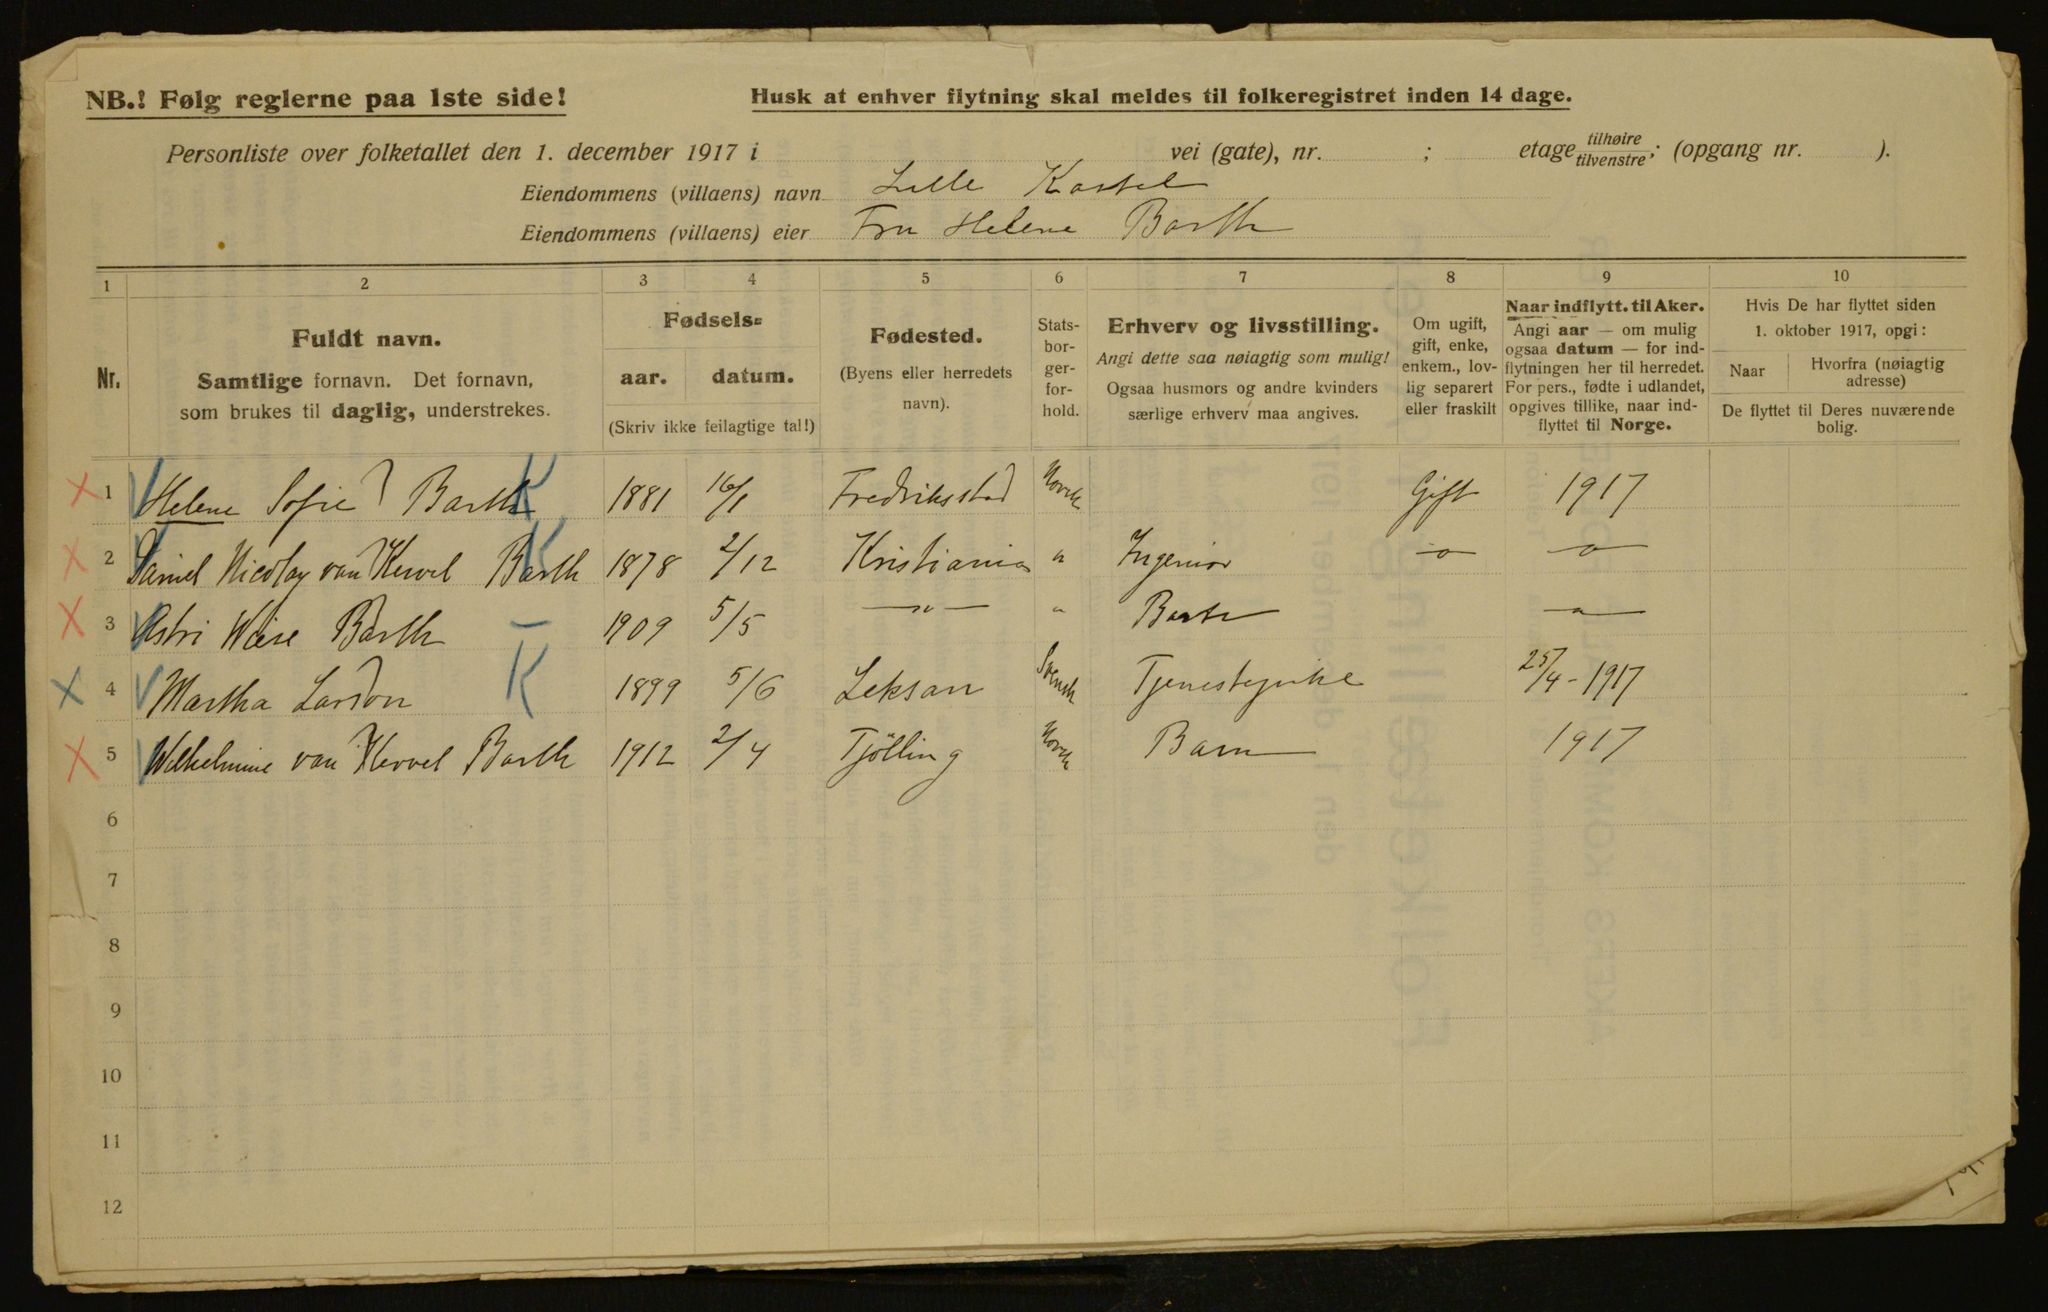 NB.! Følg reglerne paa 1ste side!
Husk at enhver flytning skal meldes til folkeregistret inden 14 dage.
Personliste over folketallet den 1. december 1917 i vei (gate), nr. ; etage tilhøire/tilvenstre; (opgang nr. ).
Eiendommens (villaens) navn Lille Kastel
Eiendommens (villaens) eier Fru Helene Barth
1 2 3 4 5 6 7 8 9 10
Nr.
Fuldt navn.
Samtlige fornavn. Det fornavn,
som brukes til daglig, understrekes.
Fødsels-
aar. datum.
(Skriv ikke feilagtige tal!)
Fødested.
(Byens eller herredets
navn).
Stats-
bor-
ger-
for-
hold.
Erhverv og livsstilling.
Angi dette saa nøiagtig som mulig!
Ogsaa husmors og andre kvinders
særlige erhverv maa angives.
Om ugift,
gift, enke,
enkem., lov-
lig separert
eller fraskilt
Naar indflytt. til Aker.
Angi aar — om mulig
ogsaa datum — for ind-
flytningen her til herredet.
For pers., fødte i udlandet,
opgives tillike, naar ind-
flyttet til Norge.
Hvis De har flyttet siden
1. oktober 1917, opgi:
Naar
Hvorfra (nøiagtig
adresse)
De flyttet til Deres nuværende
bolig.
1 Helene Sofie Barth K 1881 16/1 Fredriksstad Norsk Gift 1917
2 Daniel Nicolay van Kervel Barth K 1878 2/12 Kristiania " Ingeniør —"— —"—
3 Astri Wiese Barth — 1909 5/5 —"— " Barn —"—
4 Martha Larson K 1899 5/6 Leksan Svensk Tjenestepike 25/4-1917
5 Wilhelmine van Kervel Barth 1912 2/4 Tjölling Norsk Barn 1917
6
7
8
9
10
11
12